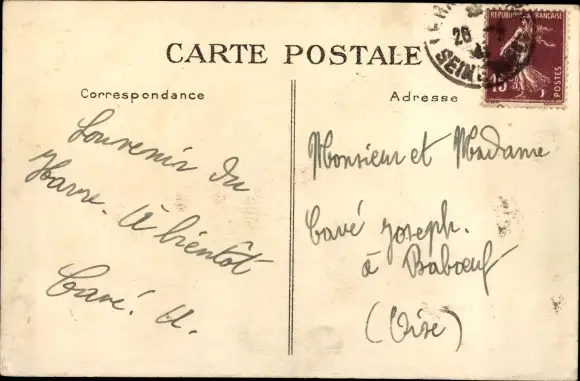 CARTE POSTALE
Correspondance
Adresse
REPUBLIQUE FRANÇAISE
POSTES
15
LE H
26
SEINE
Souvenir du
Havre. A bientôt
Cavé. A.
Monsieur et Madame
Cavé Joseph.
à Babœuf
(Oise)